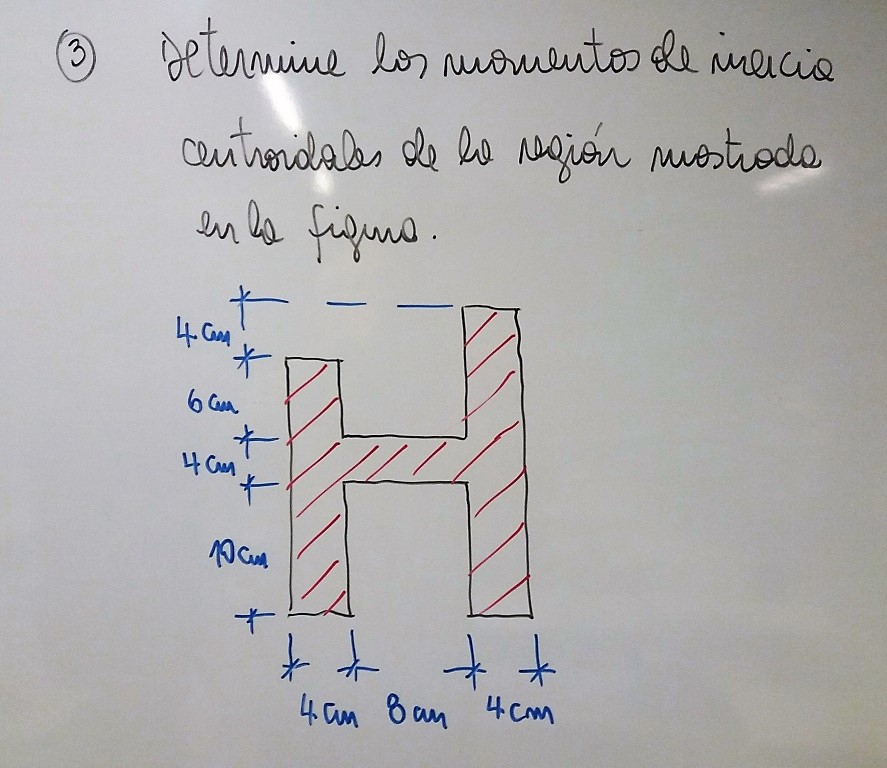 ③ Determine los momentos de inercia
centroidales de la región mostrada
en la figura.
4 cm
6 cm
4 cm
10 cm
4 cm 8 cm 4 cm